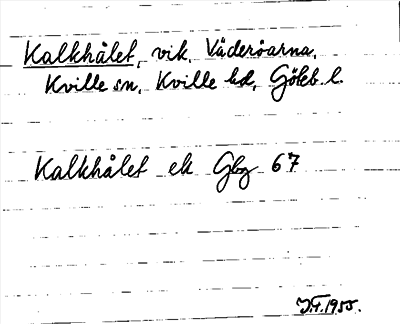 Kalkhålet, vik, Väderöarna,
Kville sn, Kville hd, Göteb. l.
Kalkhålet ek Gbg 67
1955.